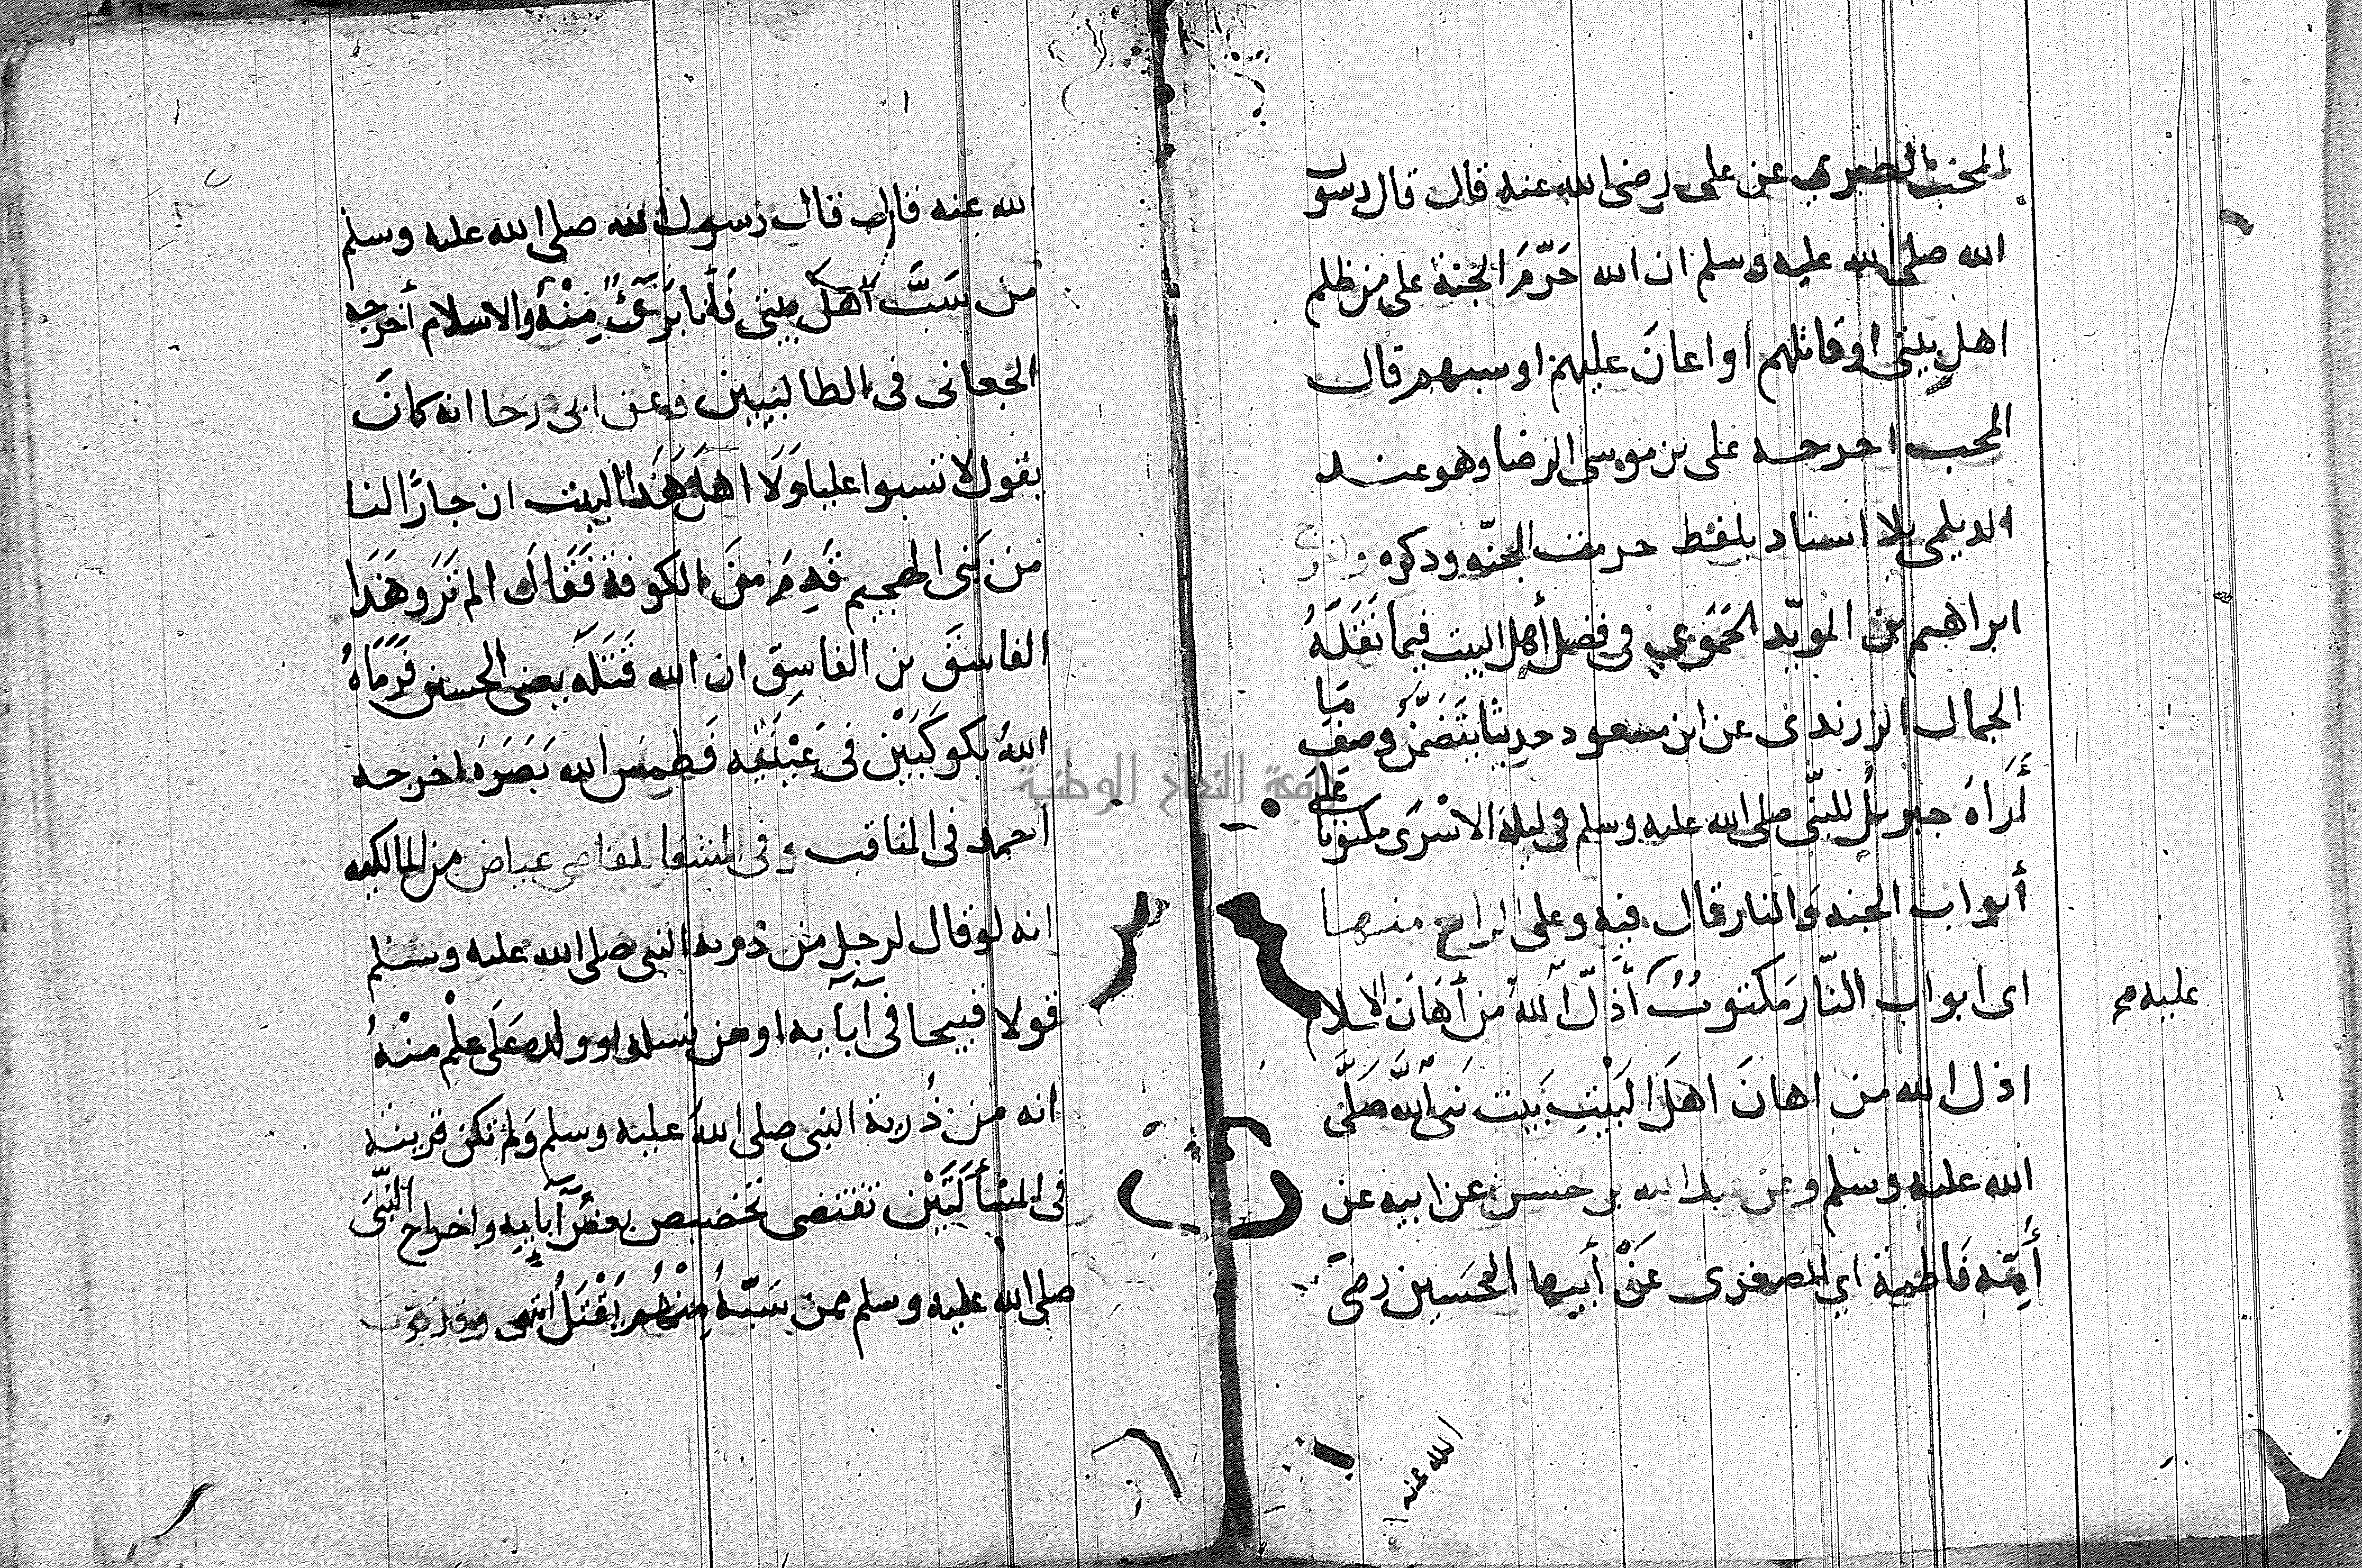 المحب الطبري عن على رضى الله عنه قال قال رسول
الله صلى الله عليه وسلم ان الله حَرَّمَ الجنة على من ظلم
اهل بيتى او قاتلهم او اعانَ عليهم او سبهم قال
المحب اخرجه على بن موسى الرضا وهو عند
الديلمى بلا اسناد بلفظ حرمت الجنّه وذكره
ابراهيم بن المويّد الحَمَوي فى فضل أهل البيت فيما نَقَلَهُ
الجمال الزرندى عن ابن مسعود حديثا يتَضَمَّن وصف مَا
أَرَاهَ جبريل للنبّى صلى الله عليه وسلم فى ليلة الاسْرَى مكتوبًا على
أبواب الجنه والنار قال فيه وعلى الرابع منها
اى ابواب النّار مكتوبٌ أذلّ اللهُ من أهَانَ الاسلام
اذل الله من اهانَ اهلَ البَيْتِ بَيت نبىّ الله صَلَّى
الله عليه وسلم وعن عبد الله بن حسن عن ابيه عن
أُمِّه فَاطمة اي الصغرى عَنْ أَبيها الحسَين رضى
عليه صح
الله عنه
الله عنه قال قال رسول الله صلى الله عليه وسلم
من سَبَّ أهلَ بيتى فَأنا بَرِئٌ مِنْهُ والاسلام أخرجه
الجعانى فى الطالبيين وعن ابى رجا انه كانَ
يقول لا تسبوا عليا وَلَا اهلَ هَذَا البيت ان جارًا لنا
من بَنى الهجيم قَدِمَ منَ الكوفة فَقَال الم تَرَو هَذَا
الفاسقَ بن الفاسِق ان الله قَتَلَه يعنى الحسين فَرَمَاهُ
اللهُ بكوكَبَيْن فى عَيْنَيْه فَطمسَ الله بَصَرَه اخرجه
أحمد فى المناقب وفى الشفا للقاضى عياض من المالكيه
انه لو قال لرجل من ذريه النبى صلى الله عليه وسلم
قولا قبيحا فى آبآيه او من نسله او ولده عَلَى علْم منْهُ
انه من ذُرية النبى صلى اللهَ عليه وسلم وَلم تكن قرينه
فى المسْألَتَيْن تقتضى تخصيص بعض آبآيِه واخراج النَّبّى
صلى الله عليه وسلم ممن سَبّهُ مِنْهُم يُقْتَلُ انتهى وقد